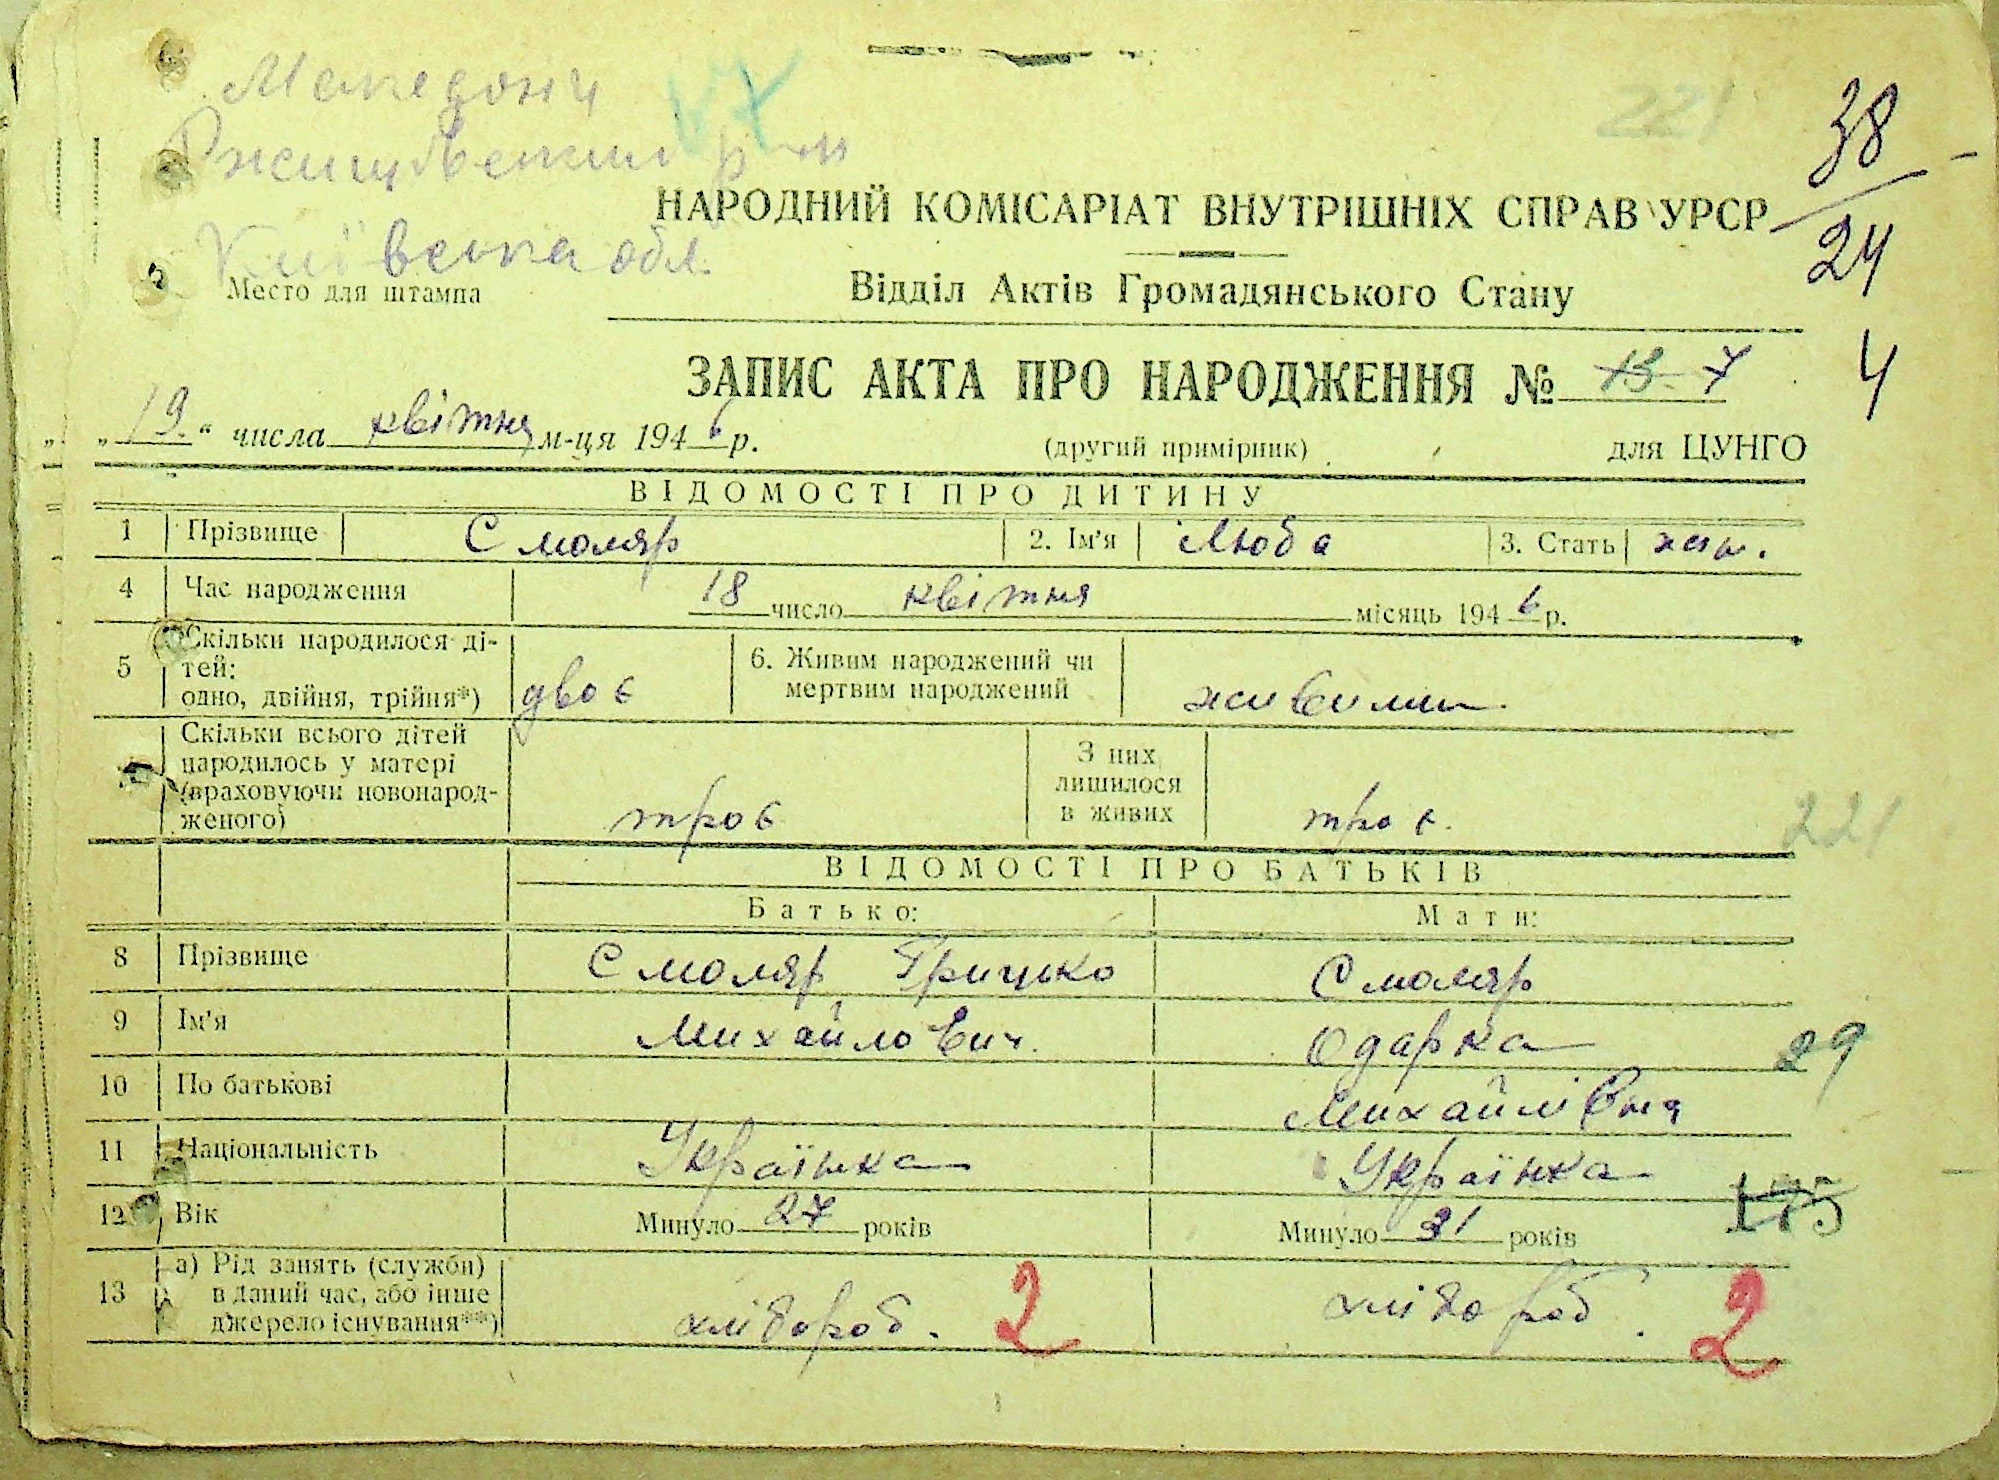 Македони 67
Ржищівський р-н 221
Київська обл.
38
24
4
НАРОДНИЙ КОМІСАРІАТ ВНУТРІШНІХ СПРАВ УРСР
Место для штампа
Відділ Актів Громадянського Стану
ЗАПИС АКТА ПРО НАРОДЖЕННЯ № 13 7
„19.“ числа квітня м-ця 1946 р. (другий примірник) для ЦУНГО
ВІДОМОСТІ ПРО ДИТИНУ
1 Прізвище Смоляр 2. Ім'я Люба 3. Стать жін.
4 Час народження 18 число квітня місяць 1946 р.
5 Скільки народилося ді-
тей:
одно, двійня, трійня*) двоє 6. Живим народжений чи
мертвим народжений живими
Скільки всього дітей
народилось у матері
(враховуючи новонарод-
женого) троє З них
лишилося
в живих троє 221
ВІДОМОСТІ ПРО БАТЬКІВ
Батько: Мати:
8 Прізвище Смоляр Грицько Смоляр
9 Ім'я Михайлович Одарка 29
10 По батькові Михайлівна
11 Національність Українка Українка
12 Вік Минуло 27 років Минуло 31 років 175
13 а) Рід занять (служби)
в даний час, або інше
джерело існування**) хлібороб. 2 хлібороб. 2